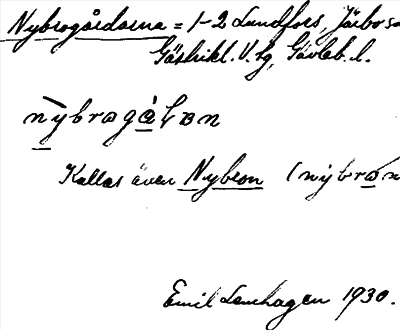 Nybrogårdarna = 1-2 Lundfors, Järbo sn
Gästrikl. V. tg, Gävleb. l.
Kallas även Nybron (nýbrọn
Emil Lenhagen 1930.